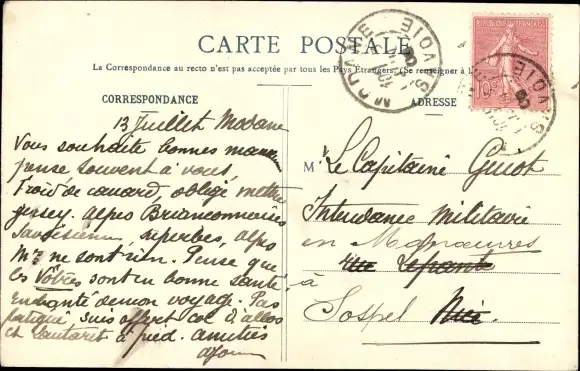 CARTE POSTALE
La Correspondance au recto n'est pas acceptée par tous les Pays Étrangers. (Se renseigner à la
CORRESPONDANCE
ADRESSE
REPUBLIQUE FRANÇAISE
10
MODANE
SAVOIE
SAVOIE
13 Juillet Modane
Vous souhaite bonnes
pense souvent à vous,
Froid de canard, obligé mettre
jersey. Alpes Brianconnaises
Savoisienne, superbes, Alpes
Mmes ne sont rien. Pense que
les Vôtres sont en bonne santé
Enchanté de mon voyage. Pas
fatigué, suis col d'allos
et Lautaret à pied. amitiés
M
Le Capitaine Guiot
Intendance Militaire
en Manœuvres
rue Lepante
à
Sospel Nice